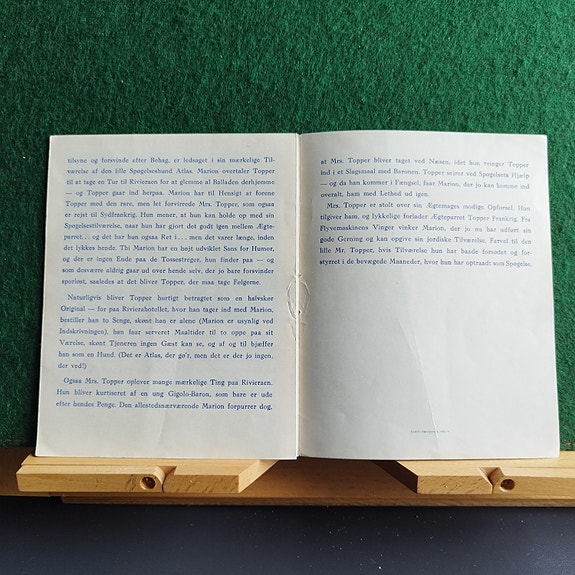 tilsyne og forsvinde efter Behag, er ledsaget i sin mærkelige Til-
værelse af den lille Spøgelseshund Atlas. Marion overtaler Topper
til at tage en Tur til Rivieraen for at glemme al Balladen derhjemme
— og Topper gaar ind herpaa. Marion har til Hensigt at forene
Topper med den rare, men let forvirrede Mrs. Topper, som ogsaa
er rejst til Sydfrankrig. Hun mener, at hun kan holde op med sin
Spøgelsestilværelse, naar hun har gjort det godt igen mellem Ægte-
parret... og det har hun ogsaa Ret i... men det varer længe, inden
det lykkes hende. Thi Marion har en højt udviklet Sans for Humor,
og der er ingen Ende paa de Tossestreger, hun finder paa — og
som desværre aldrig gaar ud over hende selv, der jo bare forsvinder
sporløst, saaledes at det bliver Topper, der maa tage Følgerne.
Naturligvis bliver Topper hurtigt betragtet som en halvskør
Original — for paa Rivierahotellet, hvor han tager ind med Marion,
bestiller han to Senge, skønt han er alene (Marion er usynlig ved
Indskrivningen), han faar serveret Maaltider til to oppe paa sit
Værelse, skønt Tjeneren ingen Gæst kan se, og af og til bjæffer
han som en Hund. (Det er Atlas, der gø'r, men det er der jo ingen,
der ved!)
Ogsaa Mrs. Topper oplever mange mærkelige Ting paa Rivieraen.
Hun bliver kurtiseret af en ung Gigolo-Baron, som bare er ude
efter hendes Penge. Den allestedsnærværende Marion forpurrer dog,
at Mrs. Topper bliver taget ved Næsen, idet hun tvinger Topper
ind i et Slagsmaal med Baronen. Topper sejrer ved Spøgelsets Hjælp
— og da han kommer i Fængsel, faar Marion, der jo kan komme ind
overalt, ham med Lethed ud igen.
Mrs. Topper er stolt over sin Ægtemages modige Opførsel. Hun
tilgiver ham, og lykkelige forlader Ægteparret Topper Frankrig. Fra
Flyvemaskinens Vinger vinker Marion, der jo nu har udført sin
gode Gerning og kan opgive sin jordiske Tilværelse, Farvel til den
lille Mr. Topper, hvis Tilværelse hun har baade forsødet og for-
styrret i de bevægede Maaneder, hvor hun har optraadt som Spøgelse.